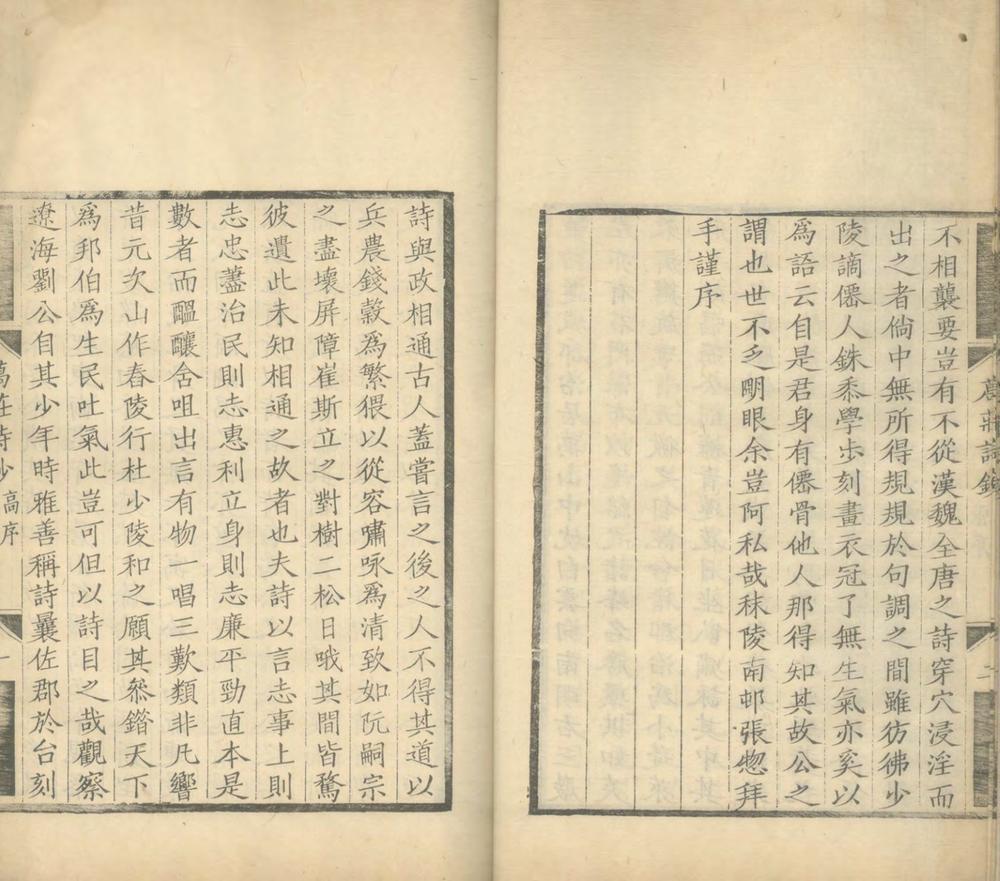 葛莊詩鈔
二
不相襲要豈有不從漢魏全唐之詩穿穴浸淫而
出之者倘中無所得規規於句調之間雖彷彿少
陵謫僊人銖黍學步刻畫衣冠了無生氣亦奚以
為語云自是君身有僊骨他人那得知其故公之
謂也世不乏明眼余豈阿私哉秣陵南邨張惣拜
手謹序
詩與政相通古人蓋嘗言之後之人不得其道以
兵農錢穀為繁猥以從容嘯咏為清致如阮嗣宗
之盡壞屏障崔斯立之對樹二松日哦其間皆騖
彼遺此未知相通之故者也夫詩以言志事上則
志忠藎治民則志惠利立身則志廉平勁直本是
數者而醞釀含咀出言有物一唱三歎類非凡響
昔元次山作舂陵行杜少陵和之願其叅錯天下
為邦伯為生民吐氣此豈可但以詩目之哉觀察
遼海劉公自其少年時雅善稱詩曩佐郡於台刻
葛莊詩鈔 高序
一